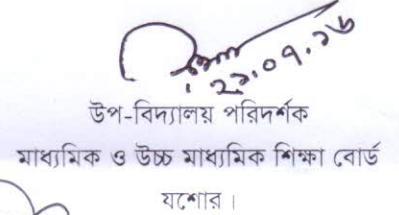 উপ-বিদ্যালয় পরিদর্শক
মাধ্যমিক ও উচ্চ মাধ্যমিক শিক্ষা বোর্ড
যশোর।